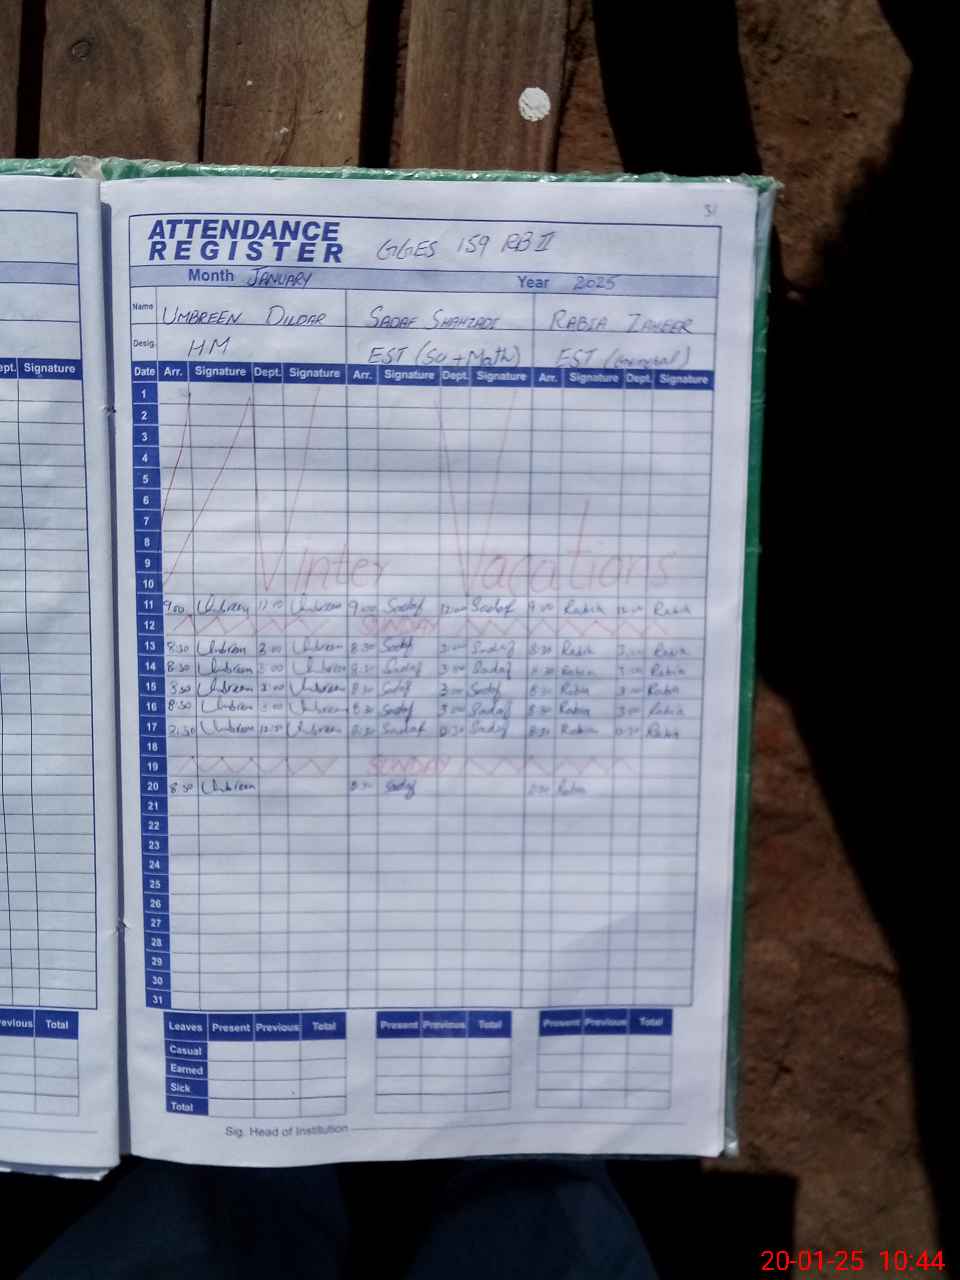 31
ATTENDANCE
REGISTER GGES 159 RB II
Month JANUARY Year 2025
Name UMBREEN DILDAR SADAF SHAHZADI RABIA ZAHEER
Desig. HM EST (Sci + Math) EST
ept. Signature
Date Arr. Signature Dept. Signature Arr. Signature Dept. Signature Arr. Signature Dept. Signature
1
2
3
4
5
6
7
8
9 Winter Vacations
10
11 9:00 Umbreen 12:00 Umbreen 9:00 Sadaf 12:00 Sadaf 9:00 Rabia 12:00 Rabia
12 SUNDAY
13 8:30 Umbreen 3:00 Umbreen 8:30 Sadaf 3:00 Sadaf 8:30 Rabia 3:00 Rabia
14 8:30 Umbreen 3:00 Umbreen 8:30 Sadaf 3:00 Sadaf 8:30 Rabia 3:00 Rabia
15 8:30 Umbreen 3:00 Umbreen 8:30 Sadaf 3:00 Sadaf 8:30 Rabia 3:00 Rabia
16 8:30 Umbreen 3:00 Umbreen 8:30 Sadaf 3:00 Sadaf 8:30 Rabia 3:00 Rabia
17 8:30 Umbreen 12:30 Umbreen 8:30 Sadaf 12:30 Sadaf 8:30 Rabia 12:30 Rabia
18
19 SUNDAY
20 8:30 Umbreen 8:30 Sadaf 8:30 Rabia
21
22
23
24
25
26
27
28
29
30
31
revious Total
Leaves Present Previous Total Present Previous Total Present Previous Total
Casual
Earned
Sick
Total
Sig. Head of Institution
20-01-25 10:44